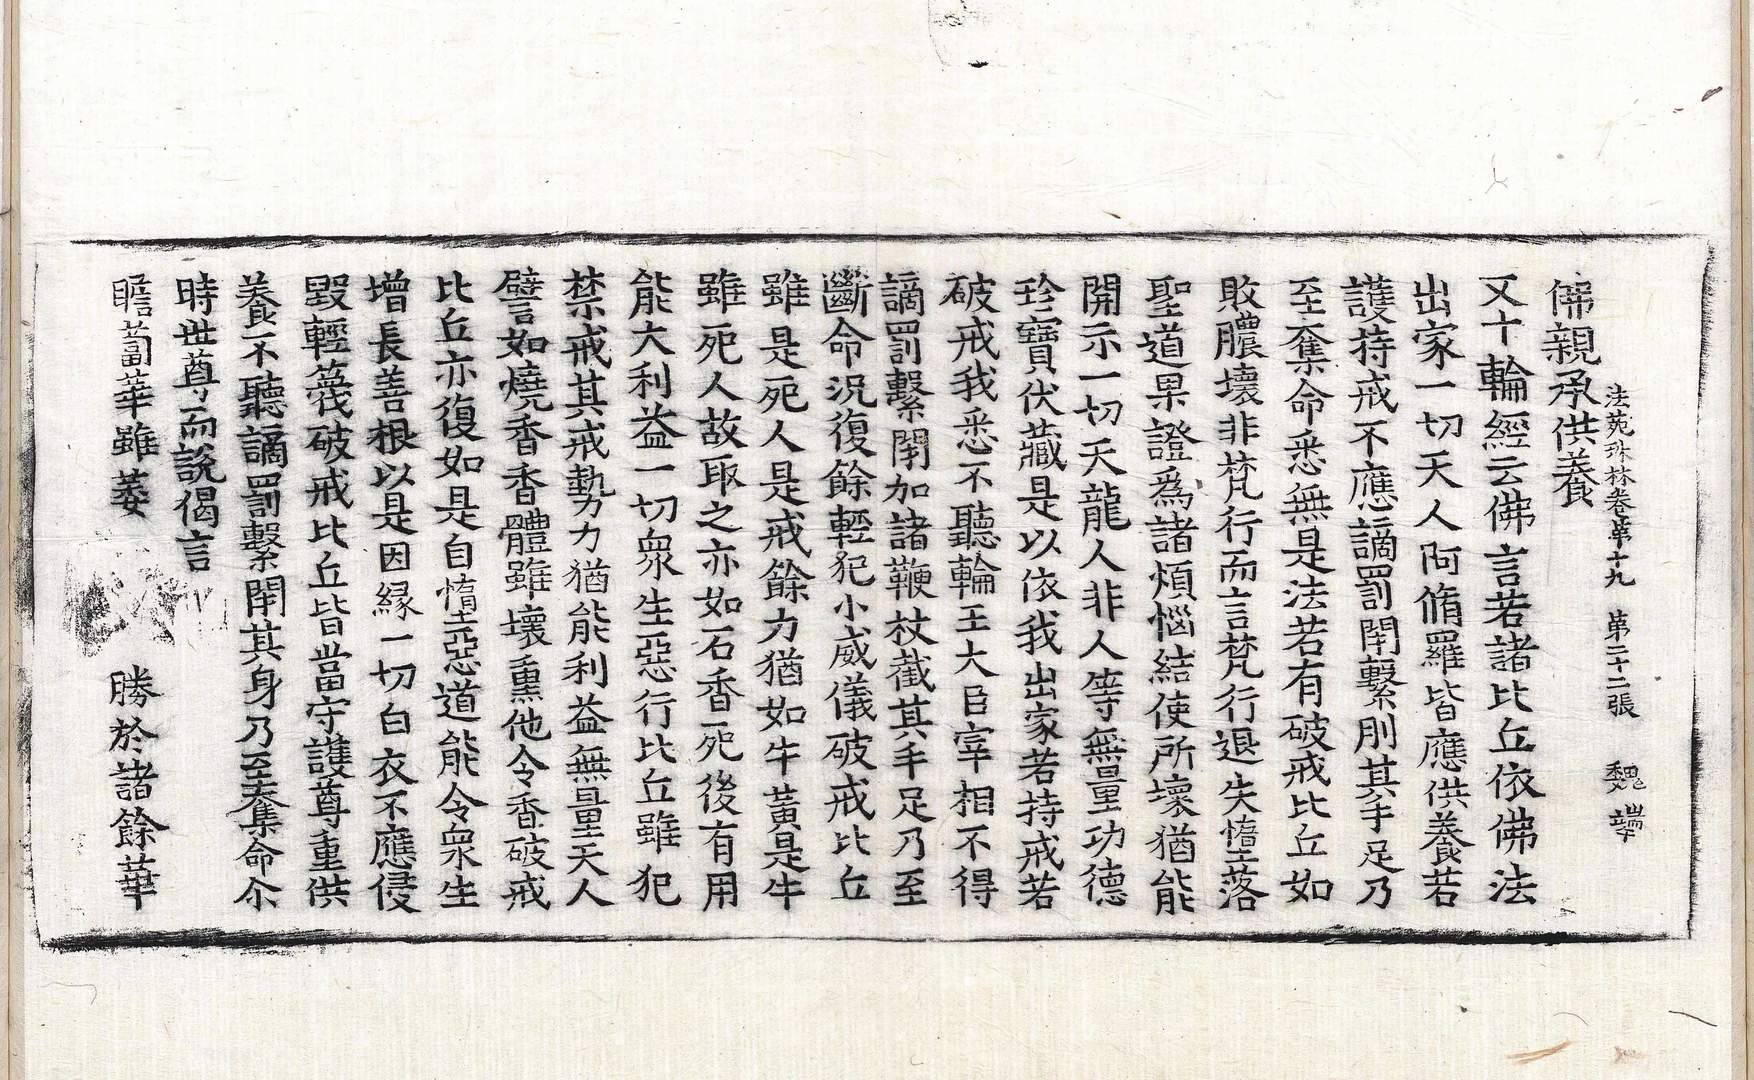 法苑珠林卷第十九 第二十二張 魏端
佛親承供養
又十輪經云佛言若諸比丘依佛法
出家一切天人阿脩羅皆應供養若
護持戒不應謫罰閉繫刖其手足乃
至奪命悉無是法若有破戒比丘如
敗膿壞非梵行而言梵行退失墮落
聖道果證爲諸煩惱結使所壞猶能
開示一切天龍人非人等無量功德
珍寶伏藏是以依我出家若持戒若
破戒我悉不聽輪王大臣宰相不得
謫罰繫閉加諸鞭杖截其手足乃至
斷命況復餘輕犯小威儀破戒比丘
雖是死人是戒餘力猶如牛黃是牛
雖死人故取之亦如石香死後有用
能大利益一切衆生惡行比丘雖犯
禁戒其戒勢力猶能利益無量天人
譬如燒香香體雖壞熏他令香破戒
比丘亦復如是自墮惡道能令衆生
增長善根以是因緣一切白衣不應侵
毀輕蔑破戒比丘皆當守護尊重供
養不聽謫罰繫閉其身乃至奪命尒
時世尊而說偈言
瞻蔔華雖萎 勝於諸餘華